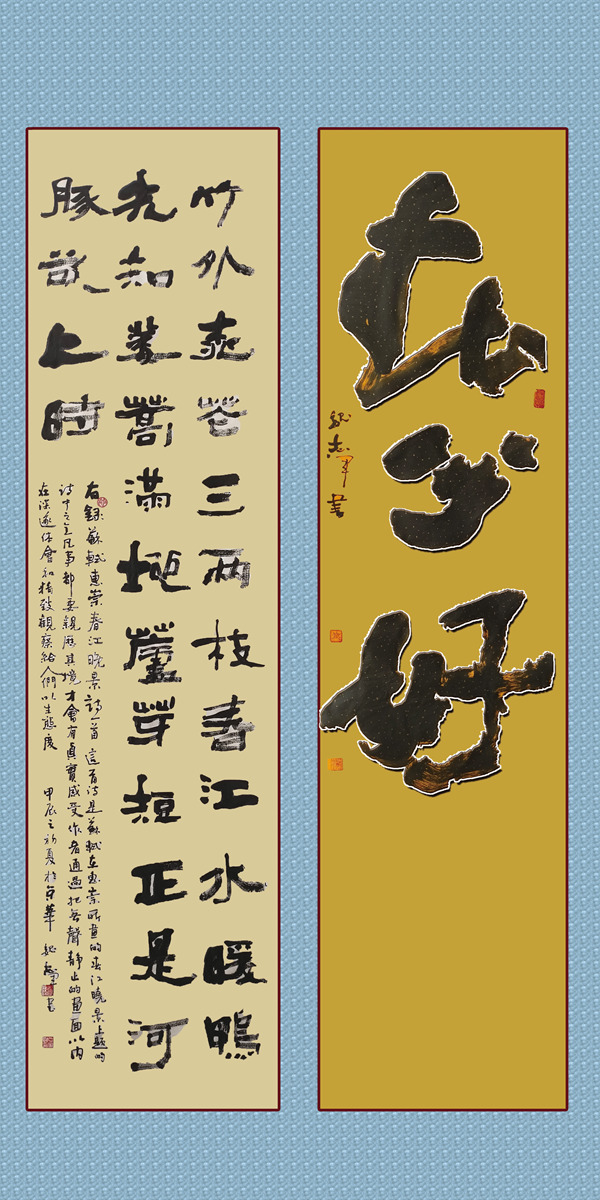 好
志軍書
竹外桃花三兩枝春江水暖鴨
先知蔞蒿滿地蘆芽短正是河
豚欲上時
右録蘇軾惠崇春江晚景詩一首這首詩是蘇軾在惠崇所畫的春江晓景上題的
詩中之凡事都要親歷其境才會有真實感受作者通過把無聲靜止的畫面以内
在深邃体會和精致觀察給人們以生態度 甲辰之初夏於京華 書